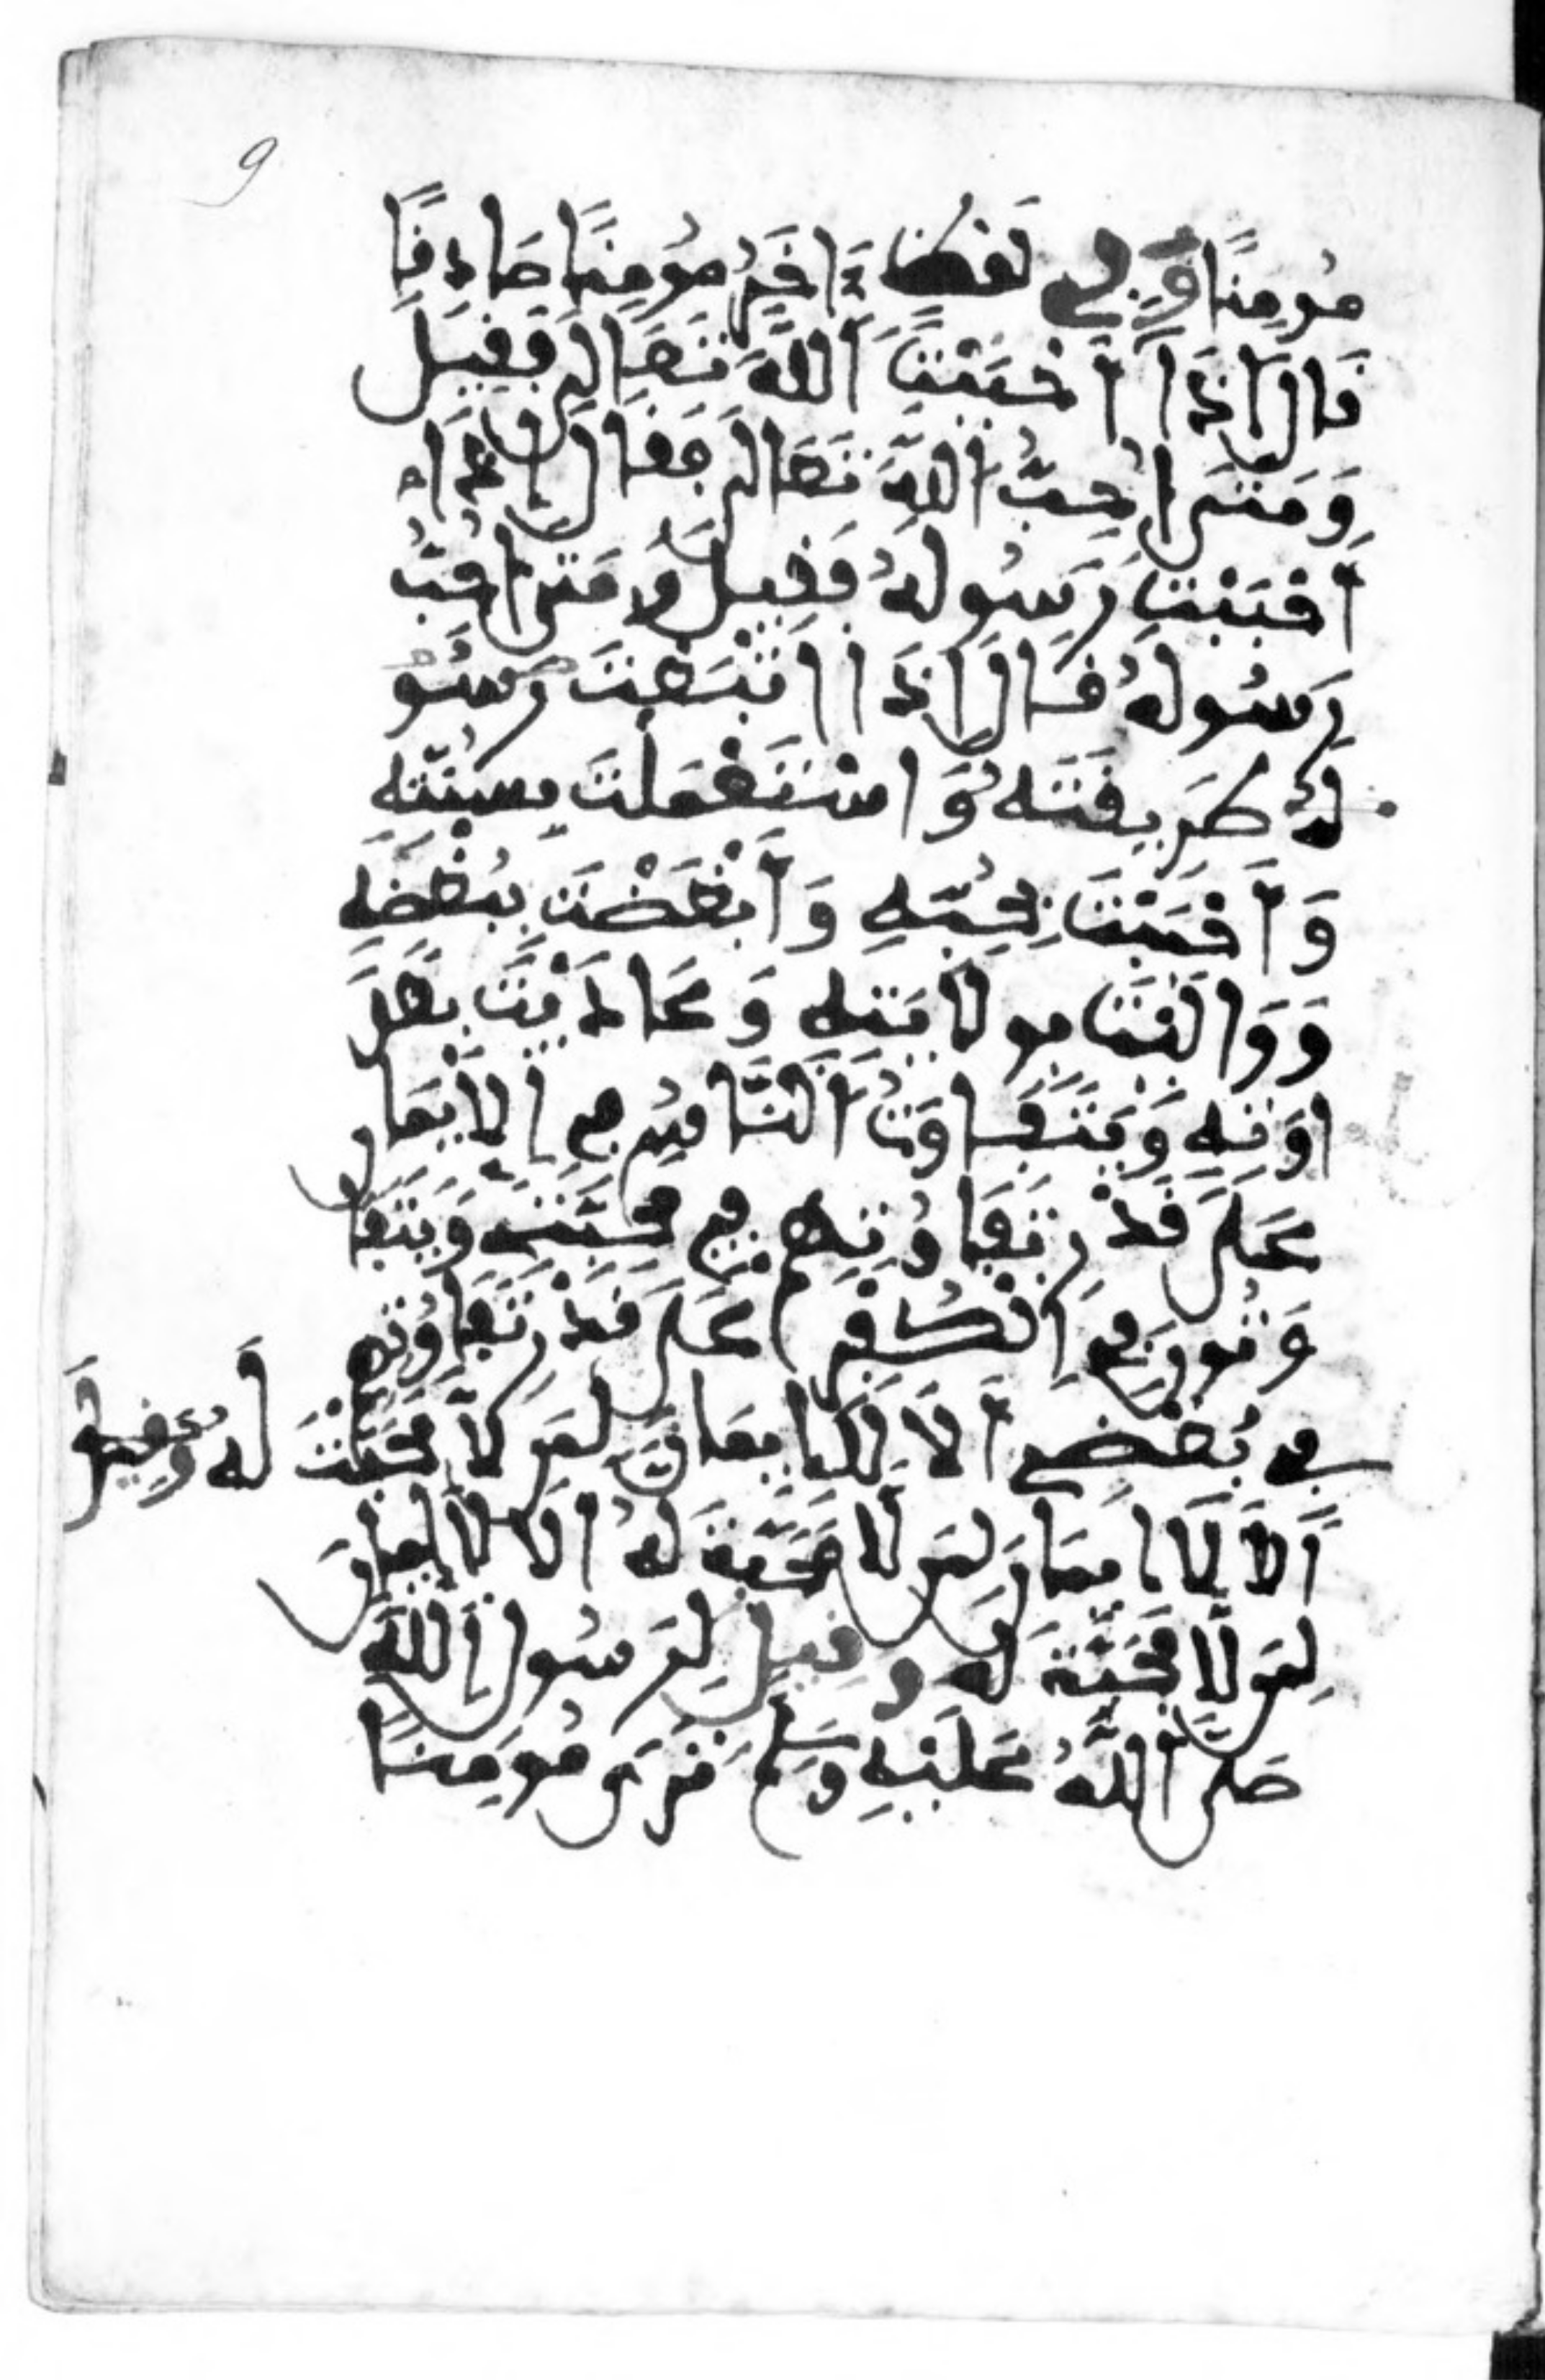 9
مُومِنًا وَفِي لَفظٍ ءَاخَرَ مُومِنًا صَادِقًا
قَالَ إِذَا أَحْبَبْتَ اللَّهَ تَعَالَى فَقِيلَ
وَمَتَى أُحِبُّ اللَّهَ تَعَالَى فَقَالَ إِذَا
أَحْبَبْتَ رَسُولَهُ فَقِيلَ وَمَتَى أُحِبُّ
رَسُولَهُ قَالَ إِذَا اتَّبَعْتَ رَسُو
لَهُ طَرِيقَتَهُ وَاسْتَعْمَلْتَ بِسُنَّتِهِ
وَأَحْبَبْتَ بِحُبِّهِ وَأَبْغَضْتَ بِبُغْضِهِ
وَوَالَيْتَ بِوِلَايَتِهِ وَعَادَيْتَ بِعَدَ
اوَتِهِ وَيَتَفَاوَتُ النَّاسُ فِي الْإِيمَانِ
عَلَى قَدْرِ تَفَاوُتِهِمْ فِي مَحَبَّتِي وَيَتَفَا
وَتُونَ فِي الْكُفْرِ عَلَى قَدْرِ تَفَاوُتِهِمْ
فِي بُغْضِي أَلَا لَا إِيمَانَ لِمَن لَا مَحَبَّتَ لَهُ وَقِيلَ
أَلَا لَا إِيمَانَ لِمَن لَا مَحَبَّةَ لَهُ أَلَا لَا إِيمَانَ
لِمَن لَا مَحَبَّةَ لَهُ وَقِيلَ لِرَسُولِ اللَّهِ
صَلَّى اللَّهُ عَلَيْهِ وَسَلَّمَ نَرَى مُومِنًا